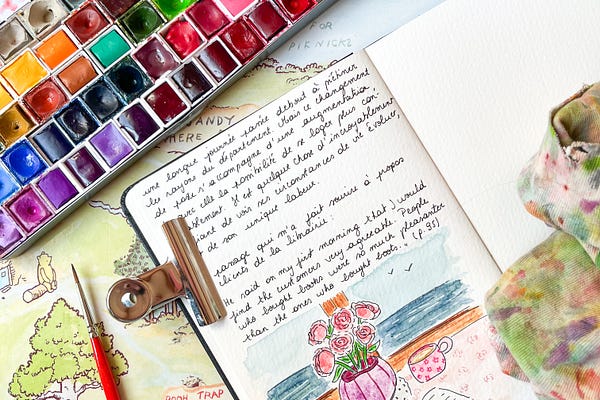 FOR
PIKNICKS
SANDY
WHERE
POOH TRAP
une longue journée passée debout à piétiner
les rayons du département. Mais ce changement
de poste s'accompagne d'une augmentation
avec elle la possibilité de se loger plus con-
Il est quelque chose d'incroyablement
de voir ses circonstances de vie évoluer,
de son unique labeur.
passage qui m'a fait sourire à propos
clients de la librairie :
He said on my first morning that I would
find the customers very agreeable. People
who bought books were so much pleasanter
than the ones who bought boots." (p.35)